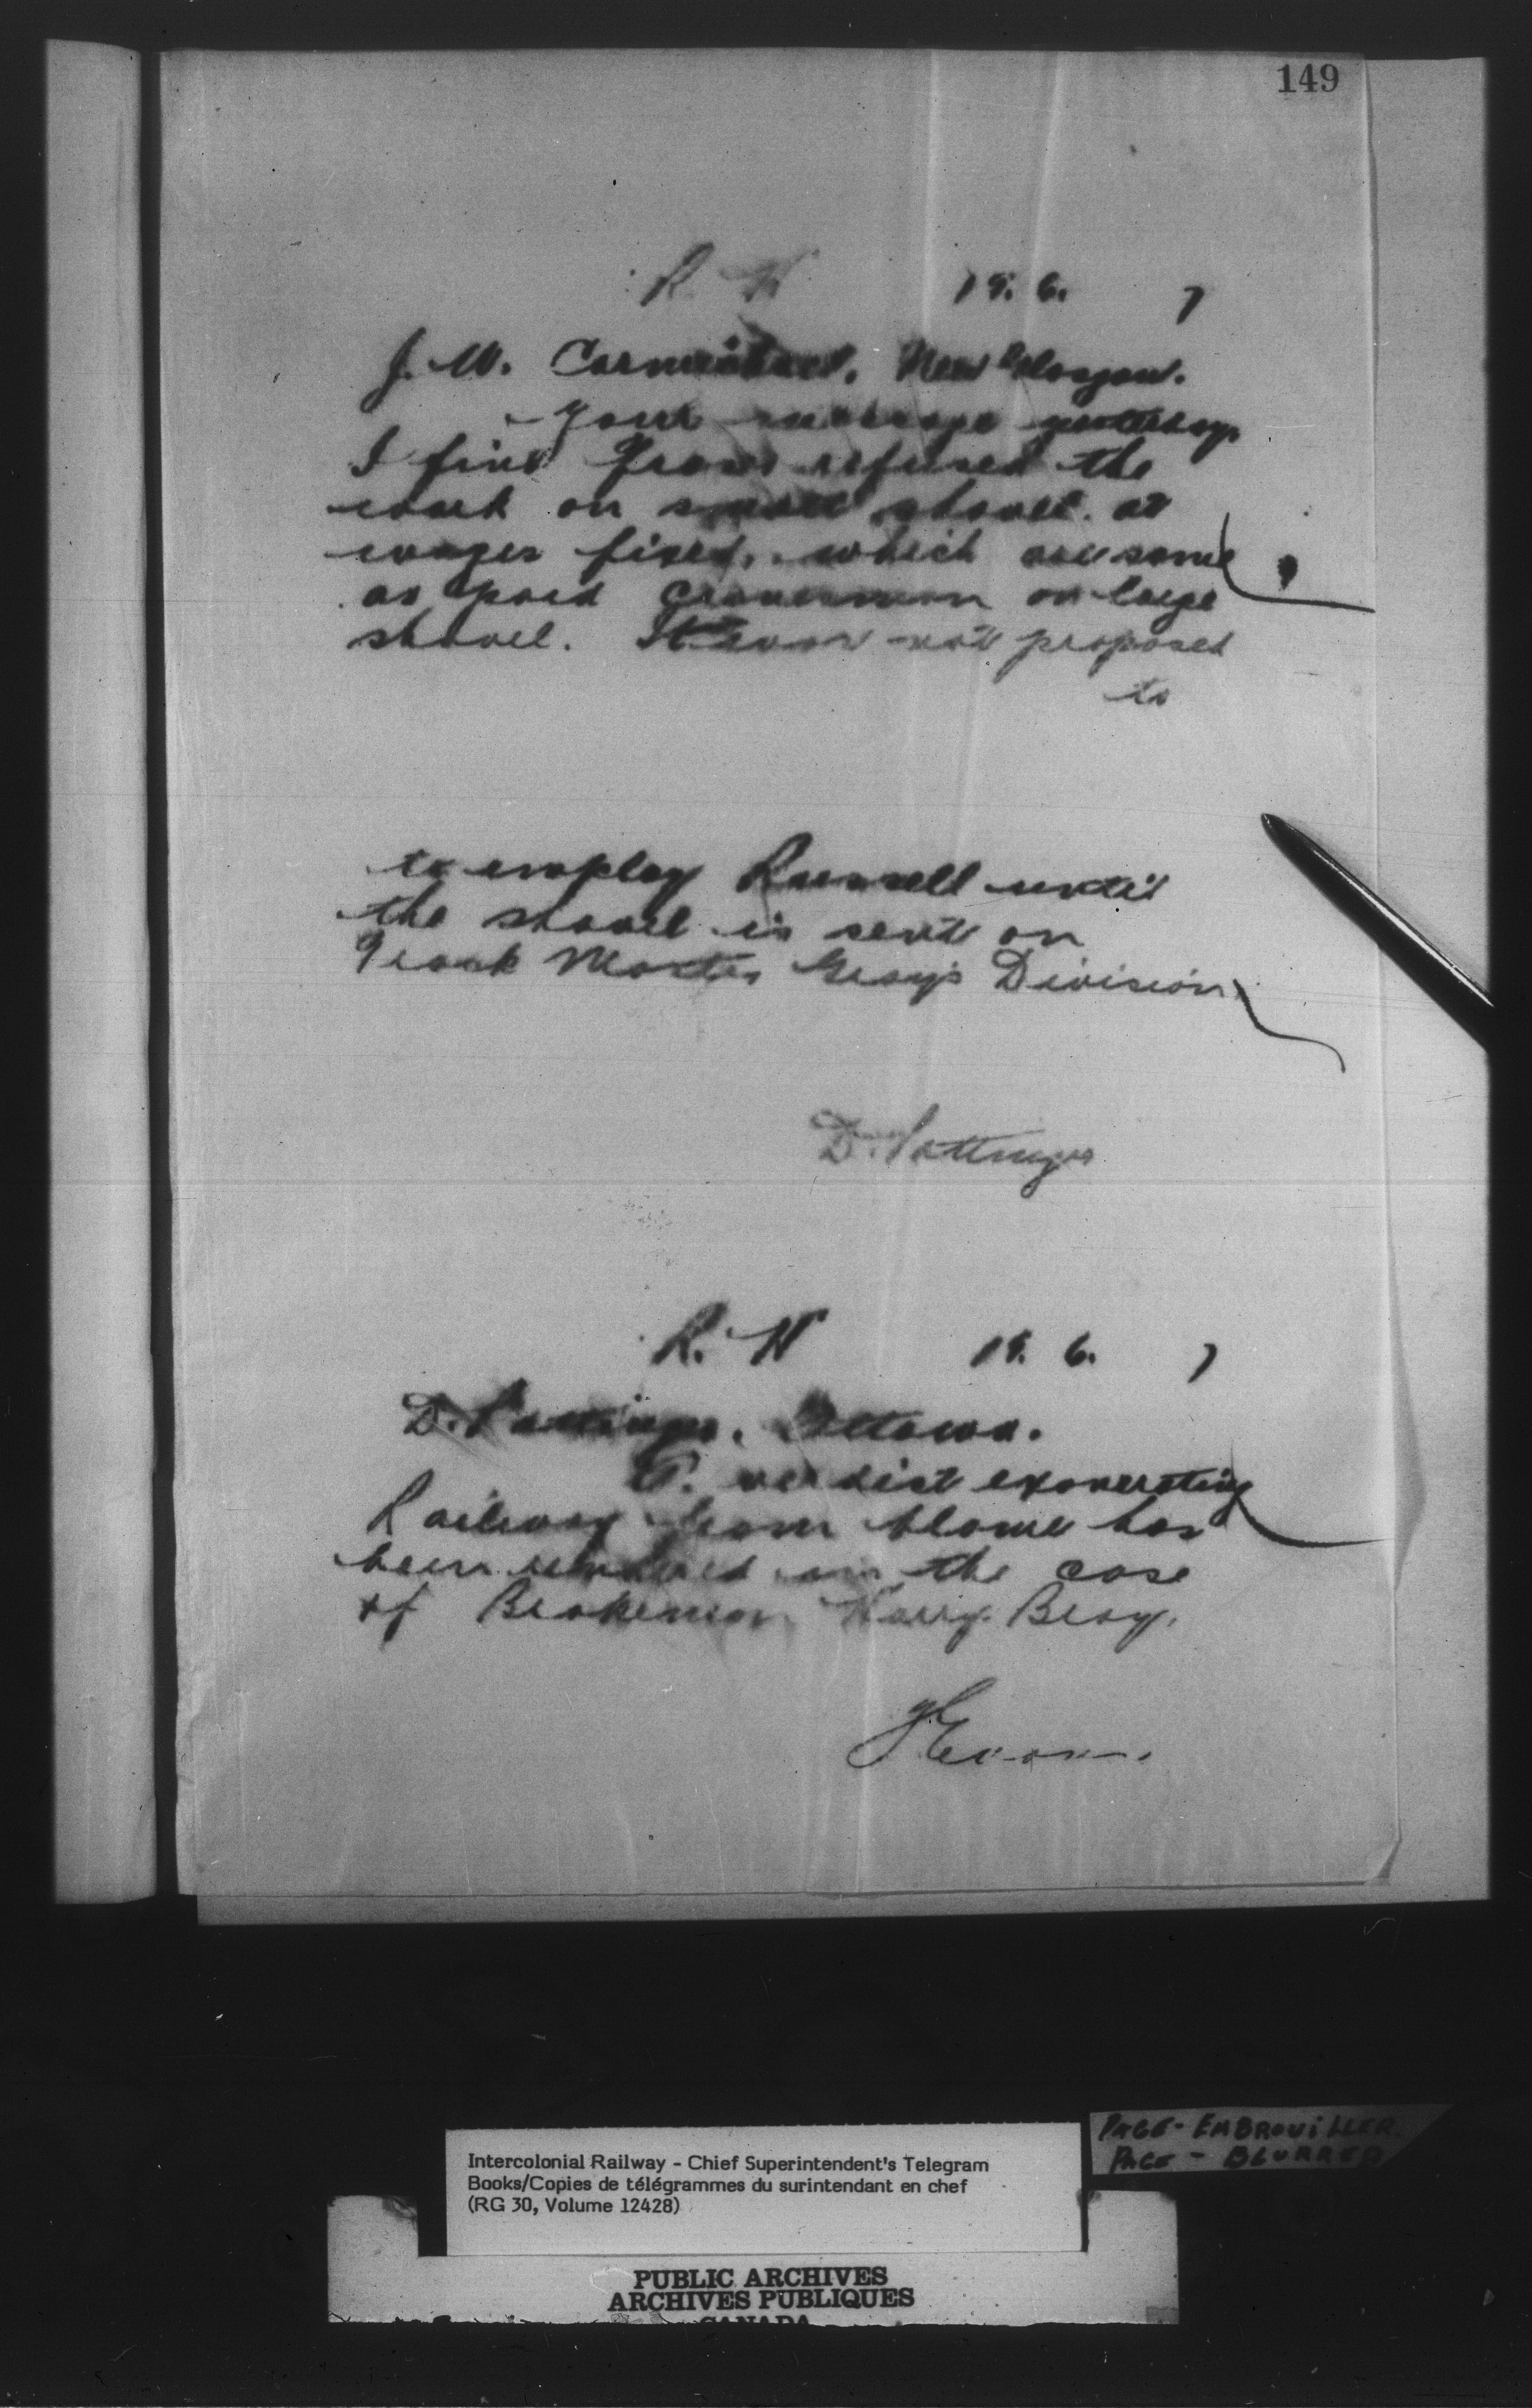 149
R. W 19. 6. 7
J. W. Carmichael. New Glasgow.
Your message yesterday.
I find refused the
work on small shovel at
wages fixed, which are same
as paid Cranesman on large
shovel. It was not proposed
to
to employ Russell until
the shovel is sent on
Track Master Gray's Division
D. Pottinger
R. W 19. 6. 7
D. Pottinger. Ottawa.
verdict exonerating
Railway from blame has
been rendered in the case
of Brakeman Harry Bray.
PAGE - EMBROUILLER
PAGE - BLURRED
Intercolonial Railway - Chief Superintendent's Telegram
Books/Copies de télégrammes du surintendant en chef
(RG 30, Volume 12428)
PUBLIC ARCHIVES
ARCHIVES PUBLIQUES
CANADA